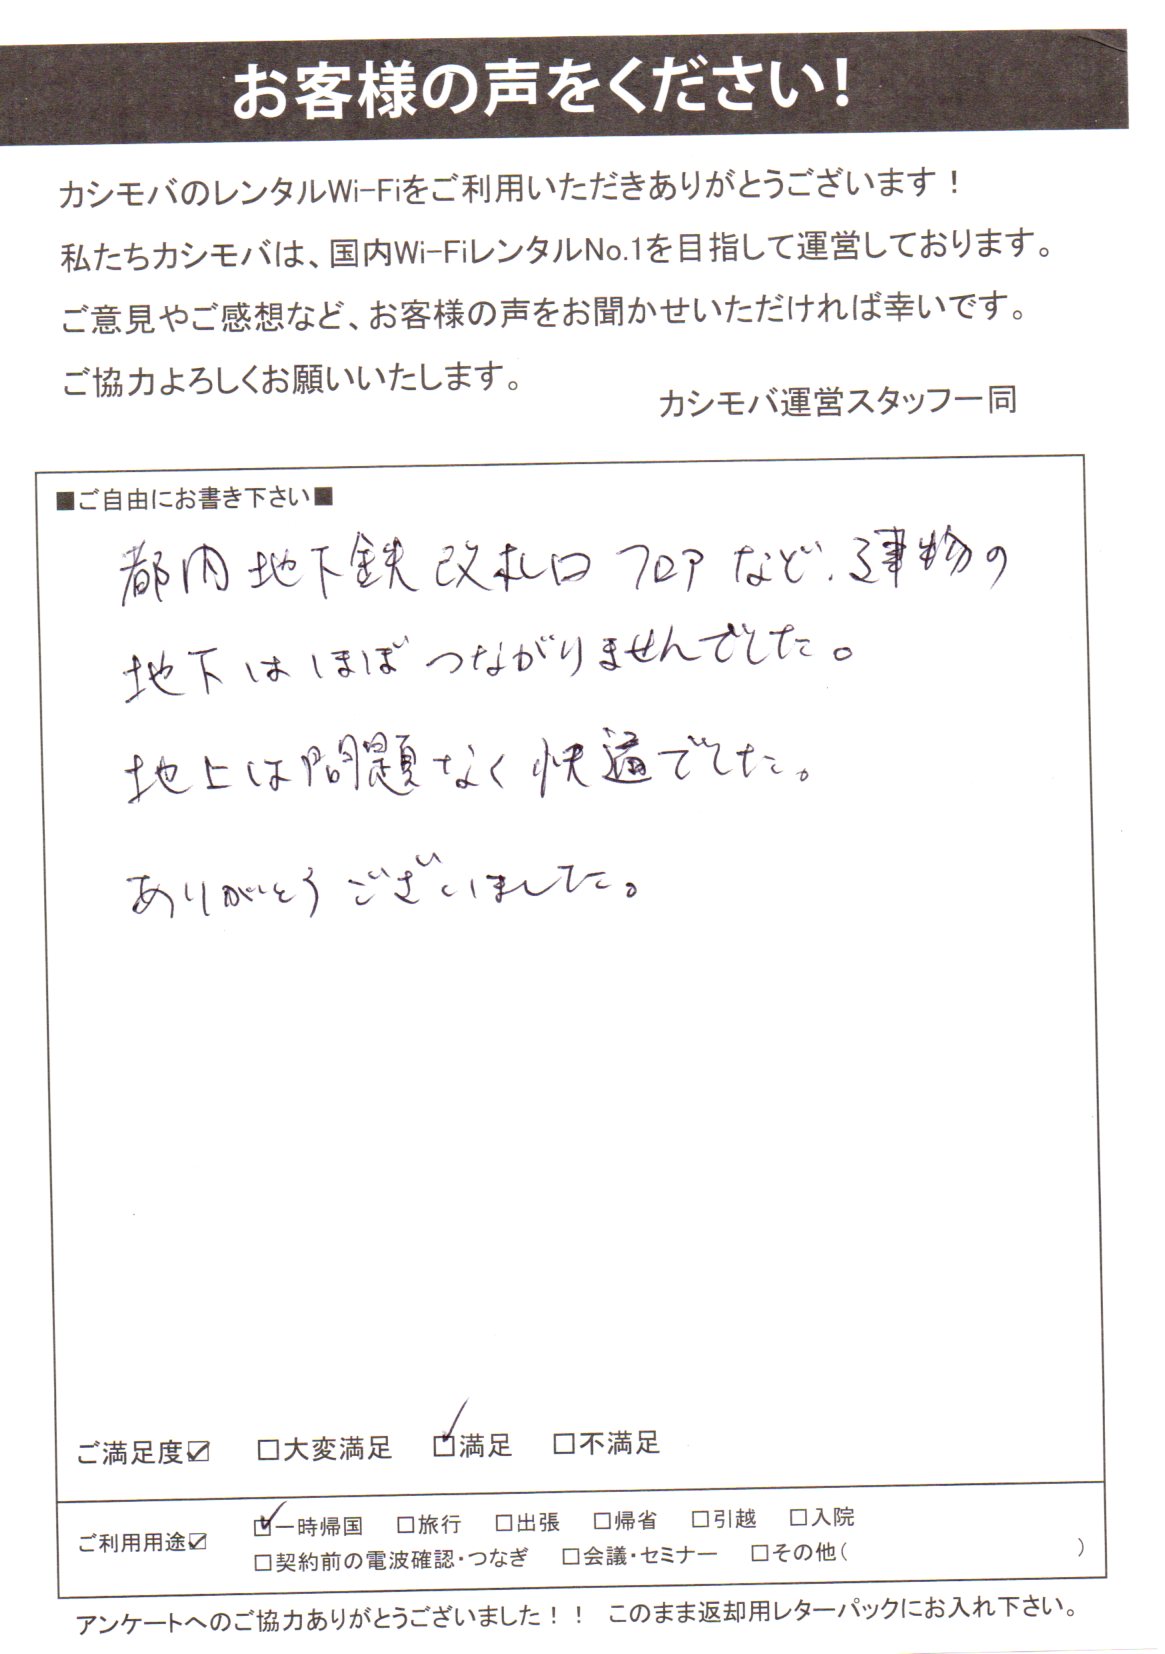 お客様の声をください!
カシモバのレンタルWi-Fiをご利用いただきありがとうございます！
私たちカシモバは、国内Wi-FiレンタルNo.1を目指して運営しております。
ご意見やご感想など、お客様の声をお聞かせいただければ幸いです。
ご協力よろしくお願いいたします。
カシモバ運営スタッフ一同
■ご自由にお書き下さい■
都内地下鉄改札口フロアなど、建物の
地下はほぼつながりませんでした。
地上は問題なく快適でした。
ありがとうございました。
ご満足度☑ □大変満足 ☑満足 □不満足
ご利用用途☑ ☑一時帰国 □旅行 □出張 □帰省 □引越 □入院
□契約前の電波確認・つなぎ □会議・セミナー □その他( )
アンケートへのご協力ありがとうございました！！ このまま返却用レターパックにお入れ下さい。